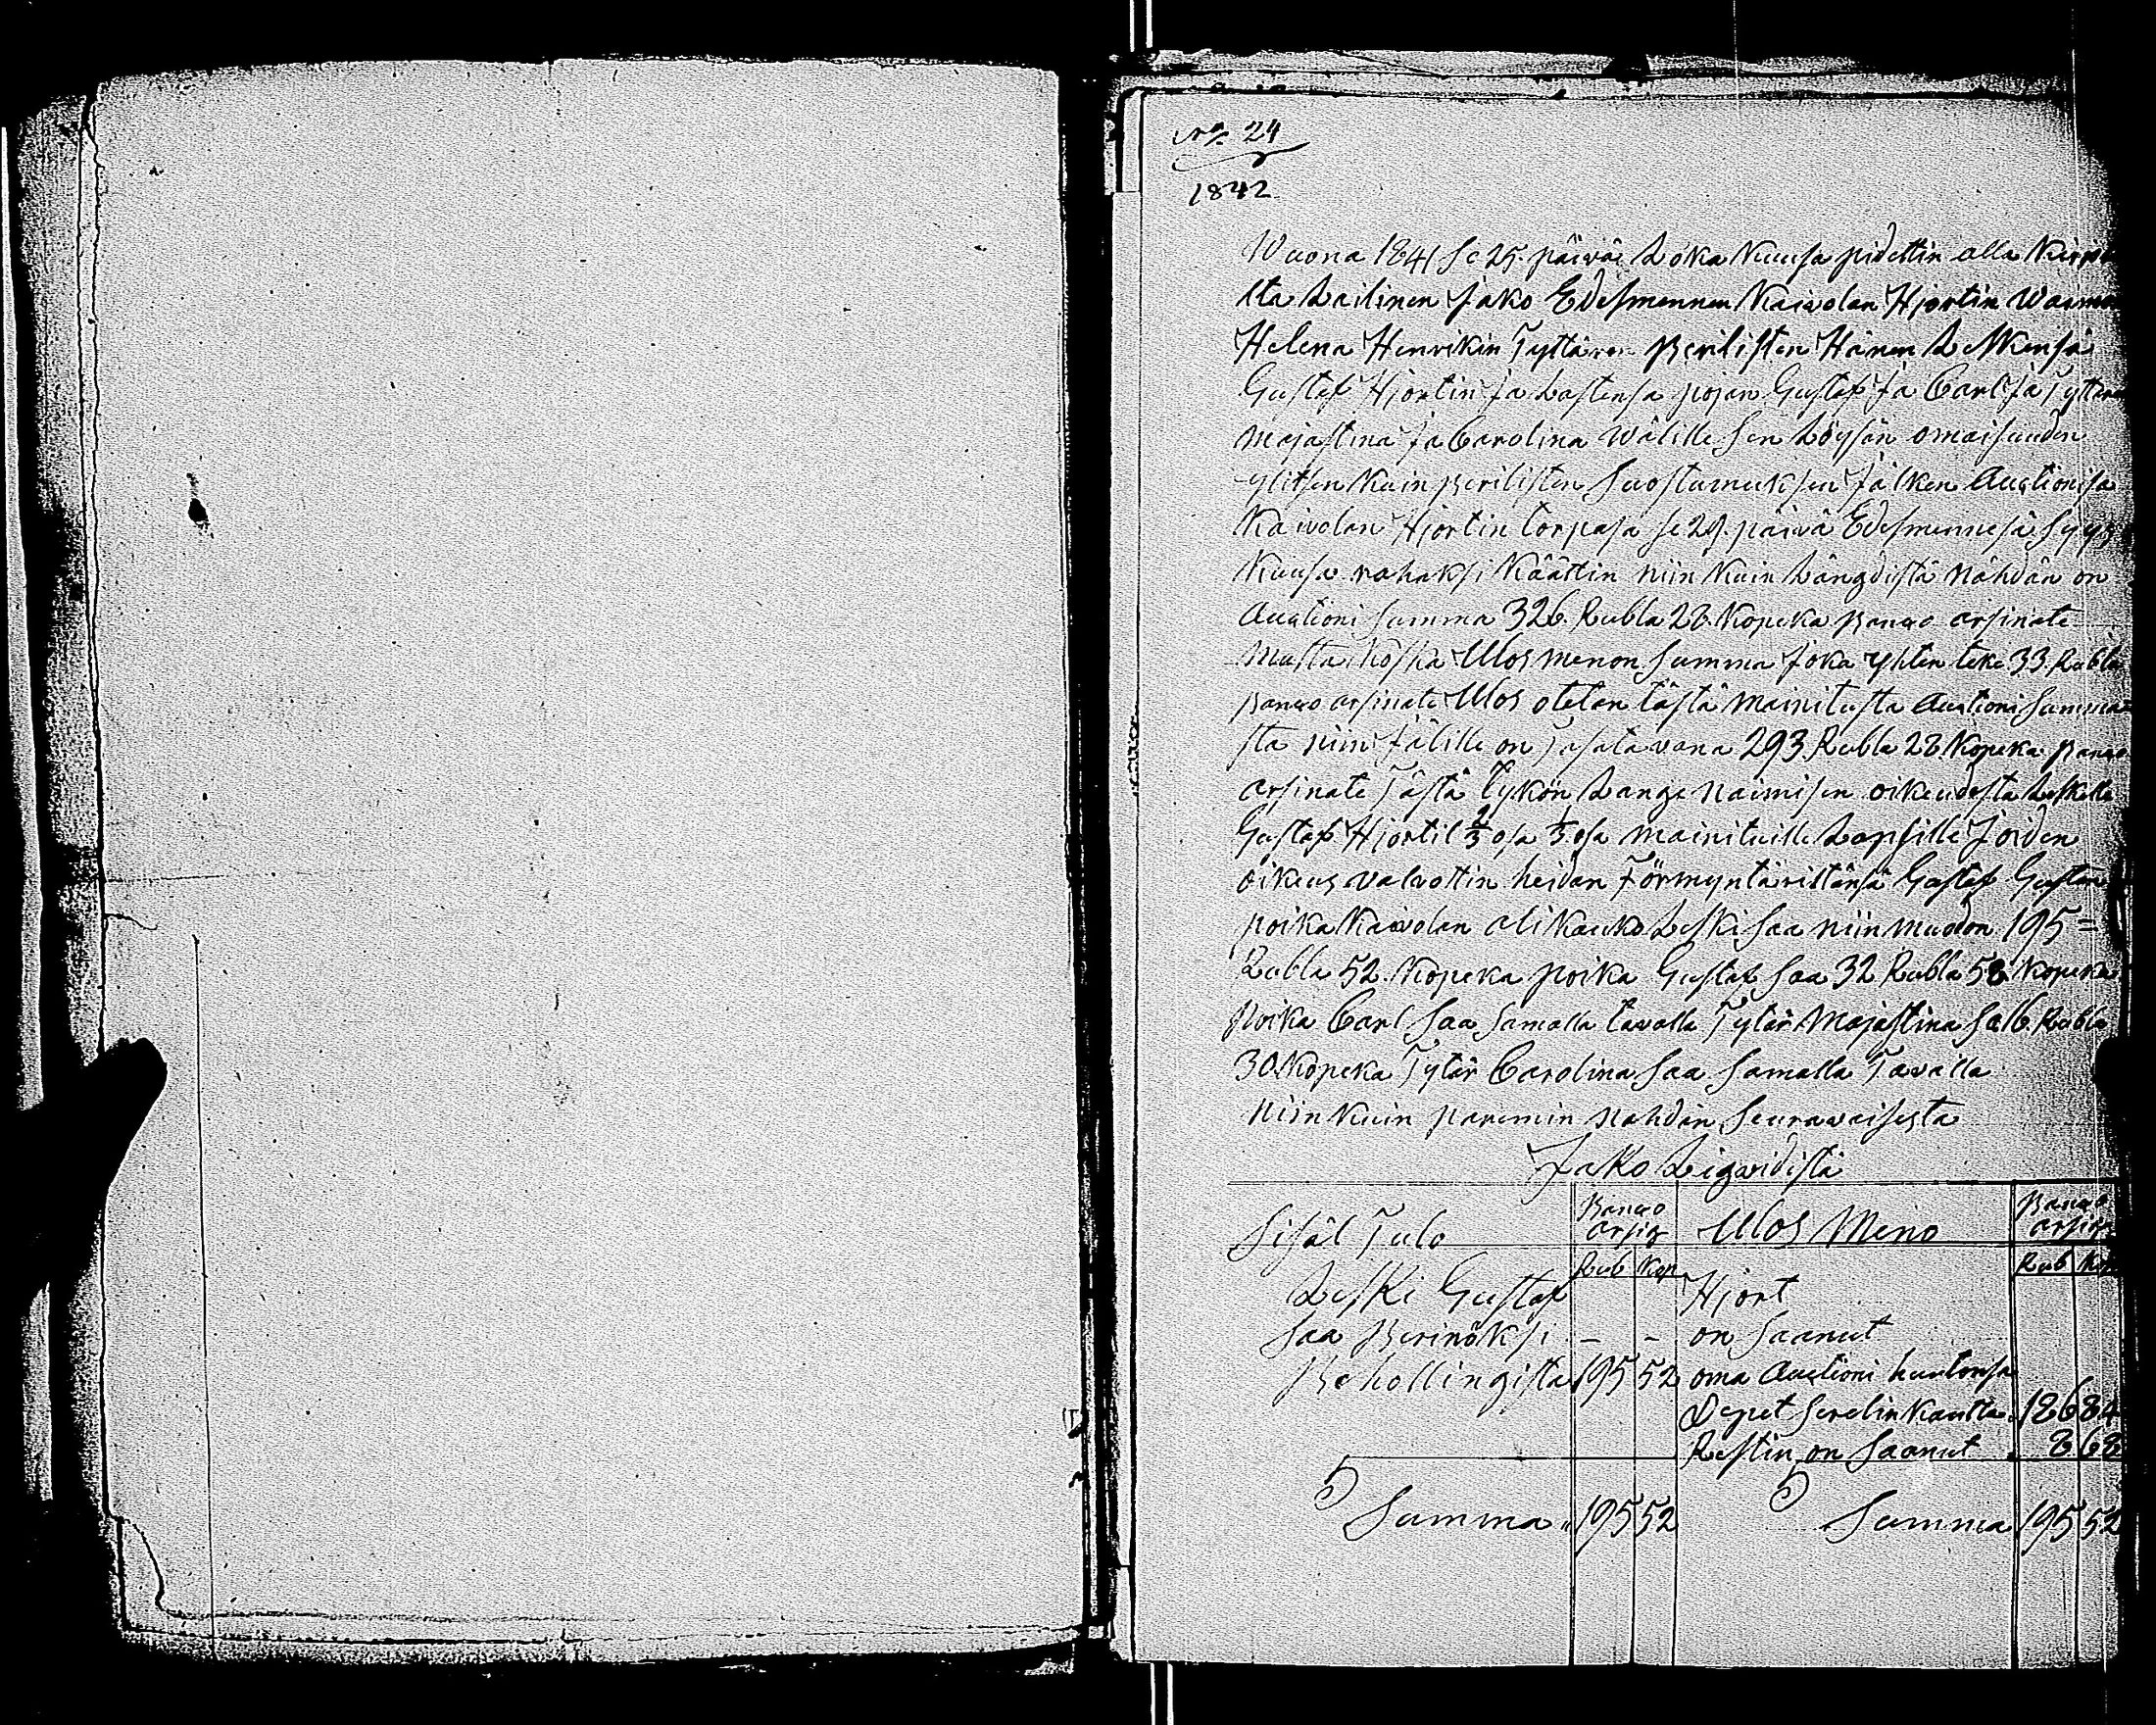 No 24
1842
Wuona 1841 se 25. päivä Loka Kuusa pidettin alla Kirjote
tta Lailinen Jako Edesmennen Kaivolan Hjortin Waimon
Helena Henrikin Tyttären Perilisten Hänen Leskensä
Gustaf Hjortin Ja Lastensa pojan Gustaf Ja Carl Ja Tytten
Majastina Ja Carolina Wälille Sen Löysän omaisuuden
ylitsen Kuin perilisten Suostumuksen Jälken Auctionisa
Kaivolan Hjortin torpasa se 29. päivä Edesmennesä Syys
Kuusa rahaksi Käättin niin Kuin Längdistä nähdän on
Auctioni Summa 326. Rubla 28. Kopeka Banco arsinate
Mutta Koska Ulos menon Summa Joka yhten teke 33. Rubla
Banco arsinate Ulos otetan tästä mainitusta Auctioni Summa
sta niin Jälille on Tasatavana 293. Rubla 28. Kopeka Banco
arsinate Tästä Lykön Lange naimisen oikeudesta Leskelle
Gustaf Hjortil 2/3 osa 1/3 osa mainituille Lapsille Joiden
oikeus valvottin heidan Förmyntäriltänsä Gustaf Gustav
poika Kaivolan ali Kauko Leski saa niin muodon 195 =
Rubla 52. Kopeka poika Gustaf saa 32 Rubla 58 Kopeka
poika Carl saa Samalla tavalla Tytär Majastina sa 16. Rubla
30. Kopeka Tytär Carolina saa Samalla Tavalla
niin Kuin paremin nähdän Seuravaisesta
Jako Ligvidistä
Sisäl Tulo Banco arsig Ulos Meno Banco arsig
Rub Kop Rub Kop
Leski Gustaf Hjort
saa Perinöksi - - on Saanut
Behollingista 195 52 oma Auctioni huutonsa
Depet serelin Kautta 186 84
Restin on Saanut 8 68
Summa 195 52 Summa 195 52